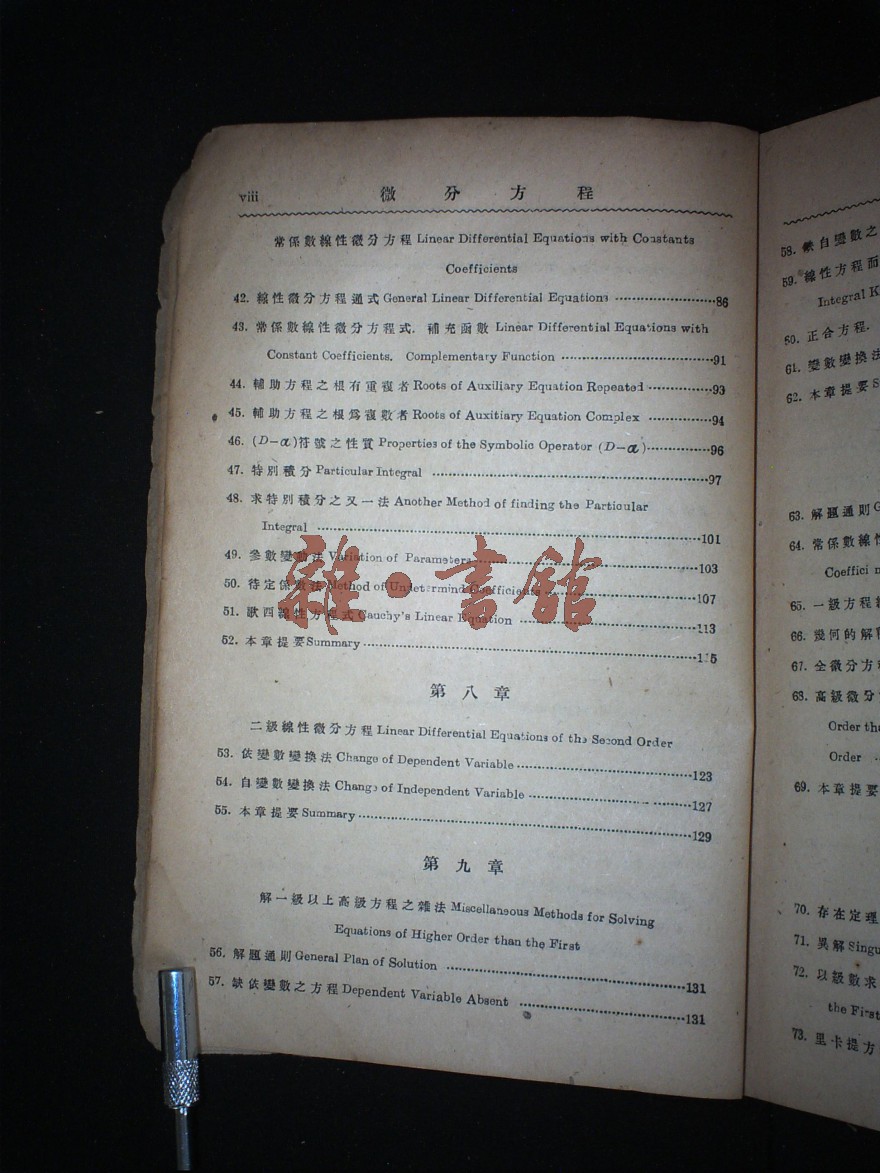 viii 微分方程
常係數線性微分方程 Linear Differential Equations with Constants
Coefficients
42. 線性微分方程通式 General Linear Differential Equations ······86
43. 常係數線性微分方程式. 補充函數 Linear Differential Equations with
Constant Coefficients. Complementary Function ······91
44. 輔助方程之根有重複者 Roots of Auxiliary Equation Repeated ······93
45. 輔助方程之根爲複數者 Roots of Auxitiary Equation Complex ······94
46. (D−α)符號之性質 Properties of the Symbolic Operator (D−α)······96
47. 特別積分 Particular Integral ······97
48. 求特別積分之又一法 Another Method of finding the Particular
Integral ······101
49. 參數變動法 Variation of Parameters ······103
50. 待定係數法 Method of Undetermind Coefficients ······107
51. 歌西線性方程式 Cauchy's Linear Equation ······113
52. 本章提要 Summary ······115
第八章
二級線性微分方程 Linear Differential Equations of the Second Order
53. 依變數變換法 Change of Dependent Variable ······123
54. 自變數變換法 Change of Independent Variable ······127
55. 本章提要 Summary ······129
第九章
解一級以上高級方程之雜法 Miscellaneous Methods for Solving
Equations of Higher Order than the First
56. 解題通則 General Plan of Solution ······131
57. 缺依變數之方程 Dependent Variable Absent ······131
58. 自變數之
59. 線性方程而
Integral
60. 正合方程.
61. 變數變換法
62. 本章提要
63. 解題通則
64. 常係數線
Coeffici
65. 一級方程
66. 幾何的解
67. 全微分方
68. 高級微分
Order
Order
69. 本章提要
70. 存在定理
71. 異解
72. 以級數求
the First
73. 里卡提方
雜·書館